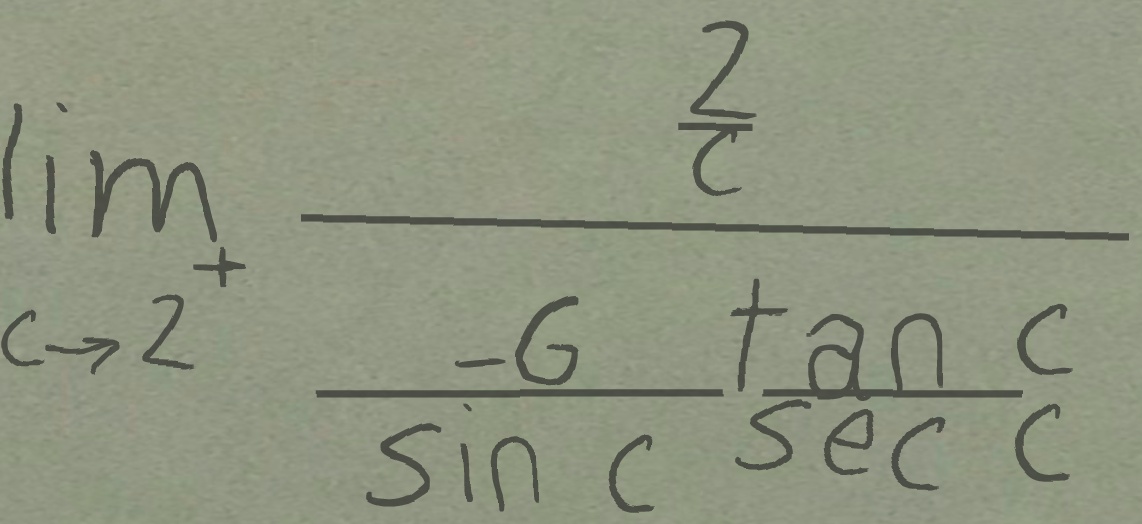 \lim_{c \to 2^+} \frac{\frac{2}{c}}{\frac{-6}{\sin c} \frac{\tan c}{\sec c}}